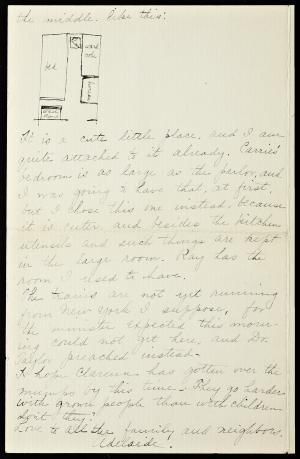 the middle. Like this:
bed
ward
robe
bureau
It is a cute little place, and I am
quite attached to it already. Carrie's
bedroom is as large as the parlor, and
I was going to have that, at first,
but I chose this one instead, because
it is cuter, and besides the kitchen
utensils and such things are kept
in the large room. Ray has the
room I used to have.
The trains are not yet running
from New York I suppose, for
the minister expected this morn-
ing could not get here, and Dr.
Taylor preached instead.
I hope Clarence has gotten over the
mumps by this time. They go harder
with grown people than with children
don't they?
Love to all the family, and neighbors.
Adelaide.